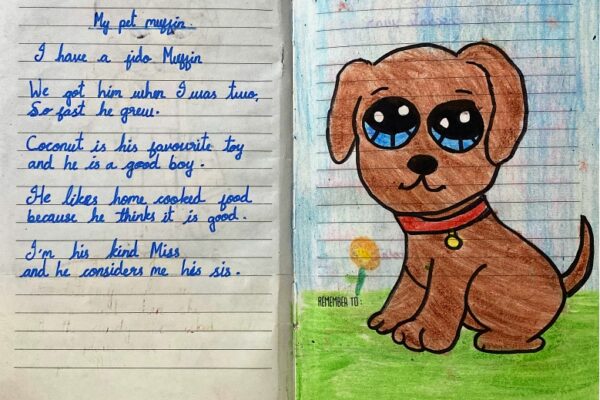 My pet muffin.
I have a fido Muffin
We got him when I was two,
So fast he grew.
Coconut is his favourite toy
and he is a good boy.
He likes home cooked food
because he thinks it is good.
I'm his kind Miss
and he considers me his sis.
REMEMBER TO: